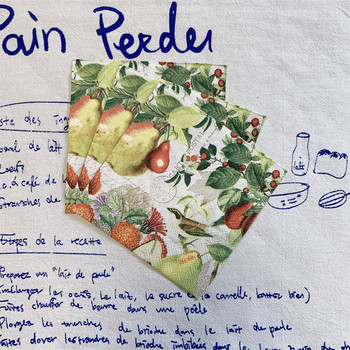 Pain Perdu
ste des ing
de lait
oeufs
c. à café de
tranches de
Etapes de la recette
Préparez un "lait de poule"
(mélangez les oeufs, le lait, le sucre la cannelle, battez bien)
Faites chauffer du beurre dans une poêle
Plongez les tranches de brioche dans le lait de poule
Faites dorer les tranches de brioche imbibées dans
lait